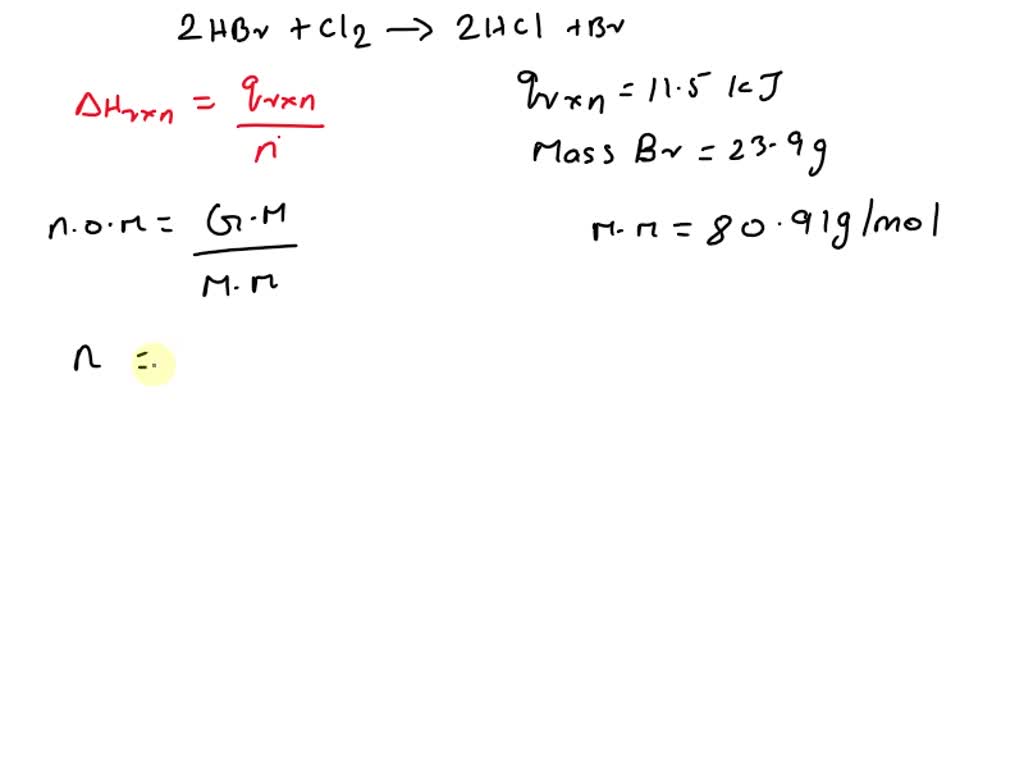 2HBr + Cl2 → 2HCl + Br
ΔHrxn = qrxn / n
qrxn = 11.5 kJ
Mass Br = 23.9g
n.o.m = G.M / M.M
M.M = 80.91g/mol
n =